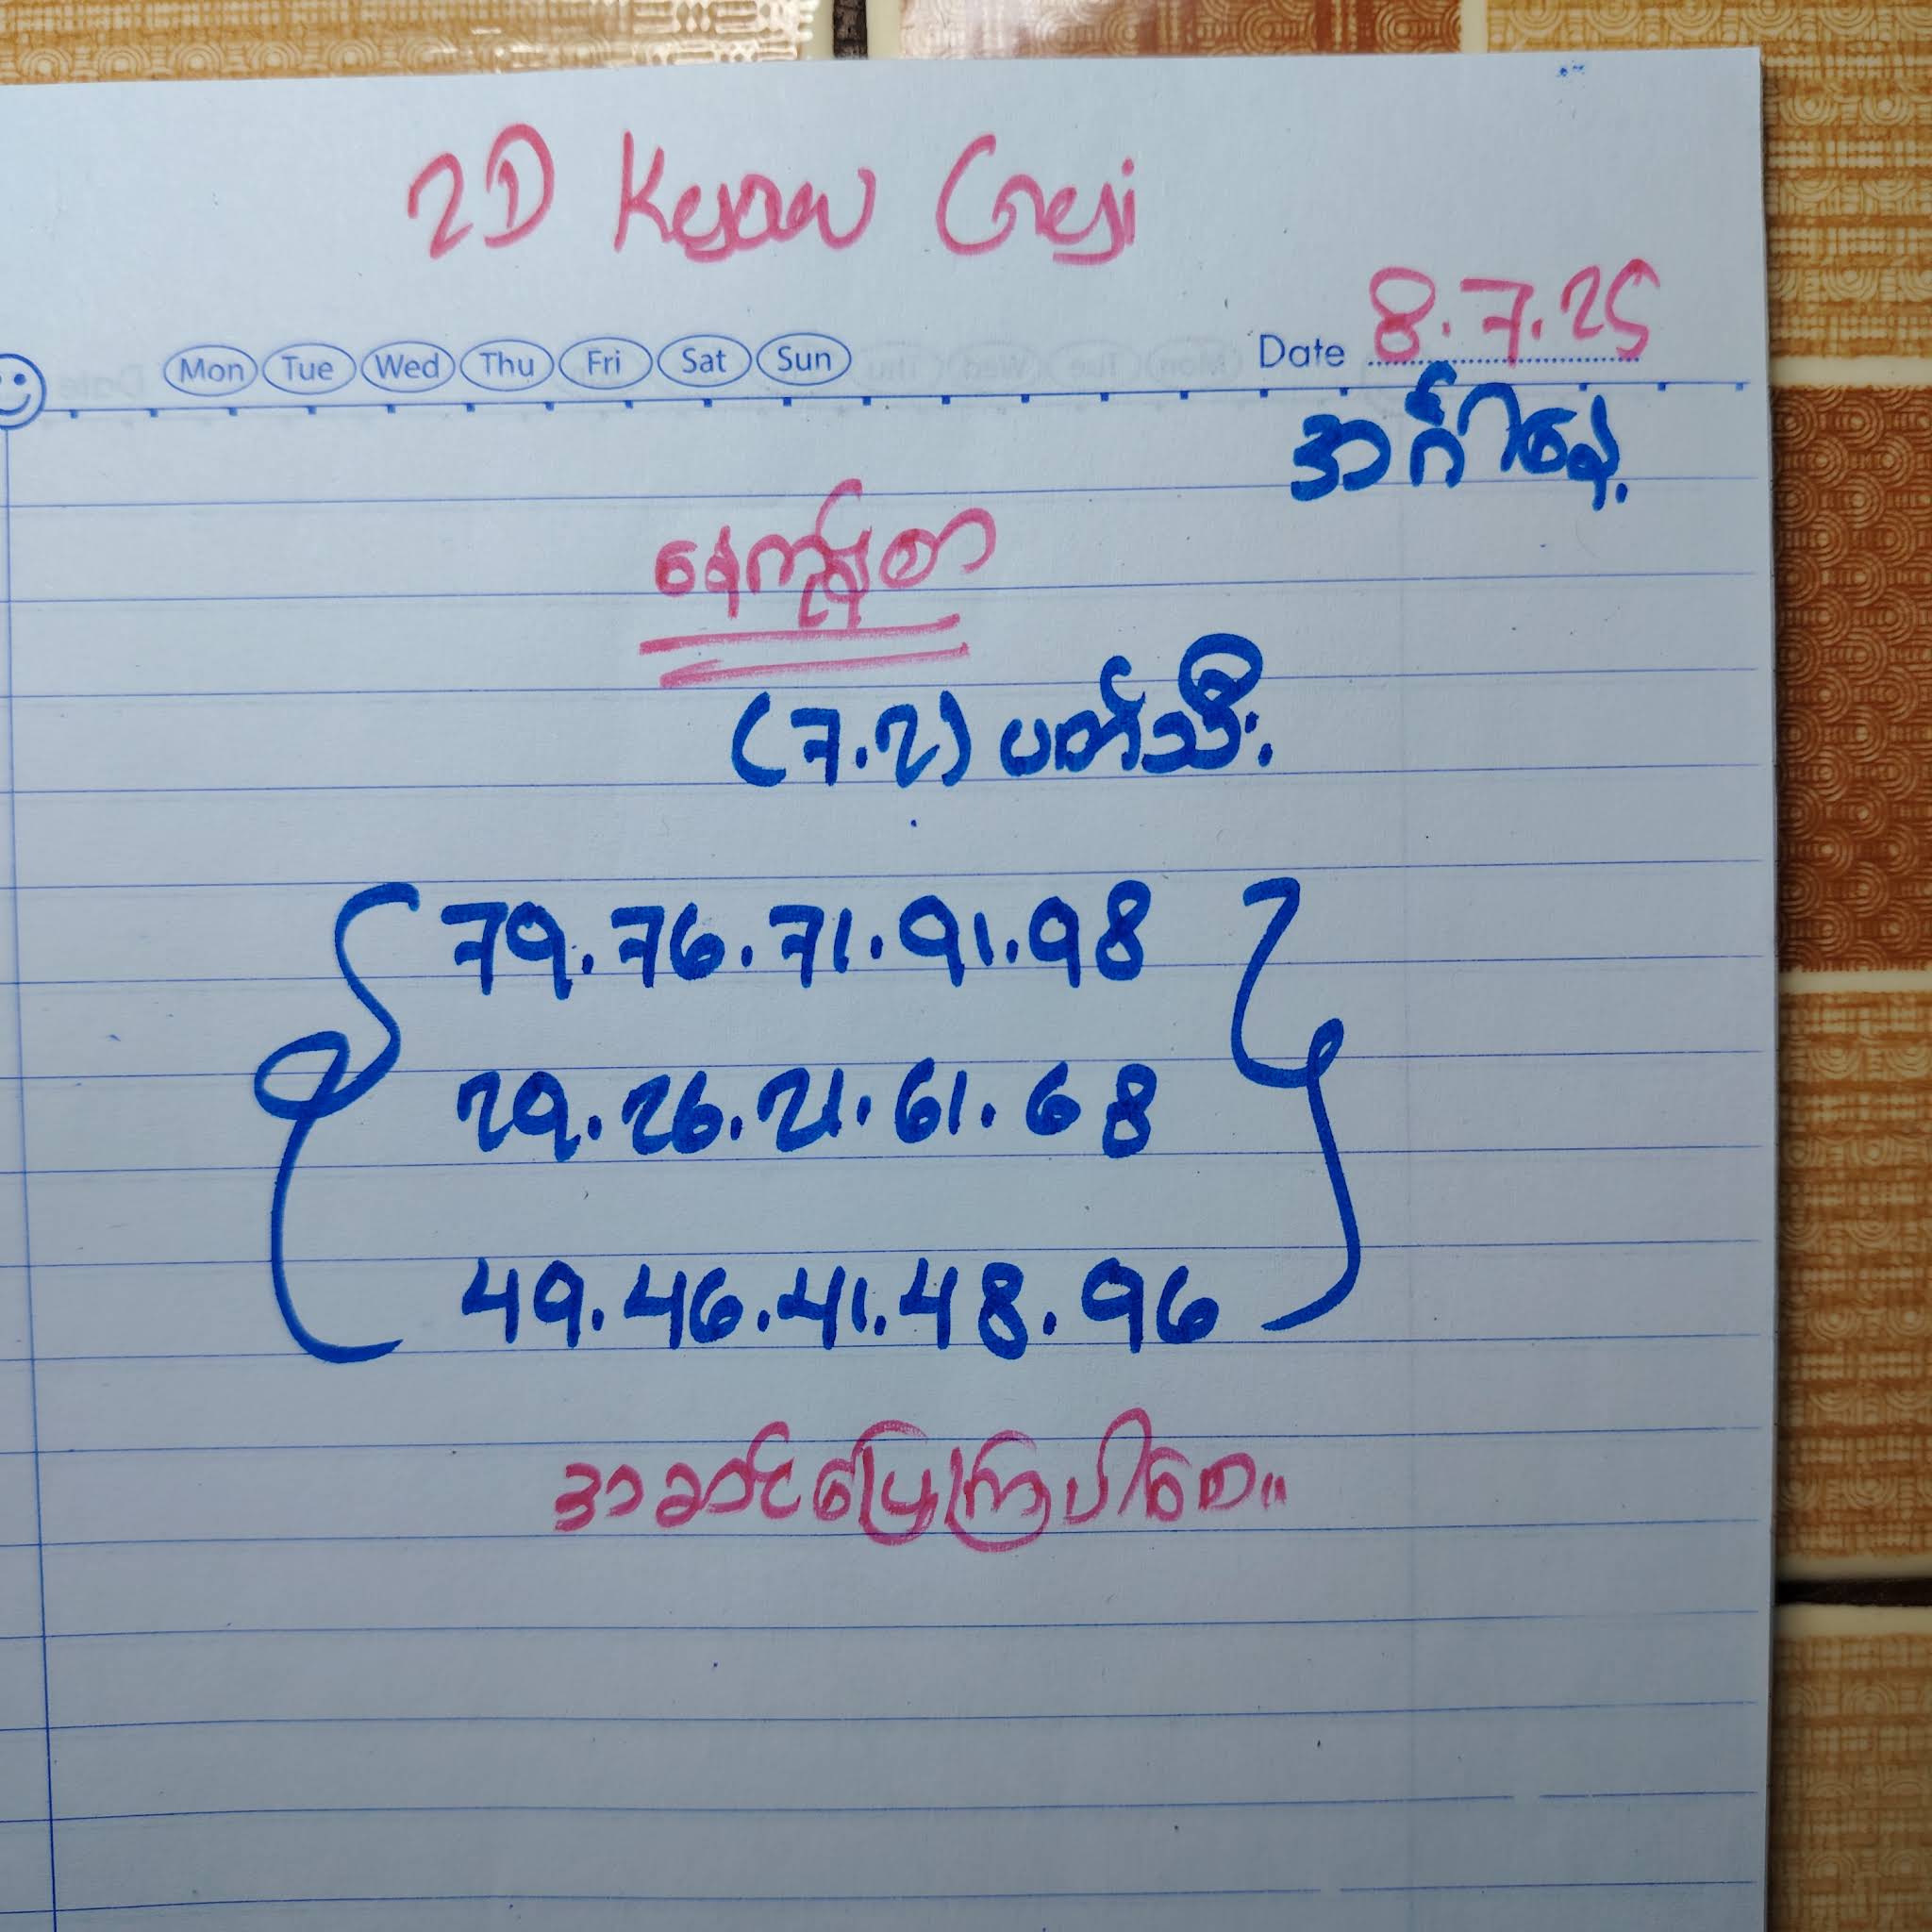 2D Kyaw Gyi
Mon Tue Wed Thu Fri Sat Sun
Date 8.7.25
အင်္ဂါနေ့
နေ့ကုန်စာ
(7.2) ပတ်သီး
79.76.71.91.98
29.26.21.61.68
49.46.41.48.96
အဆင်ပြေကြပါစေ။